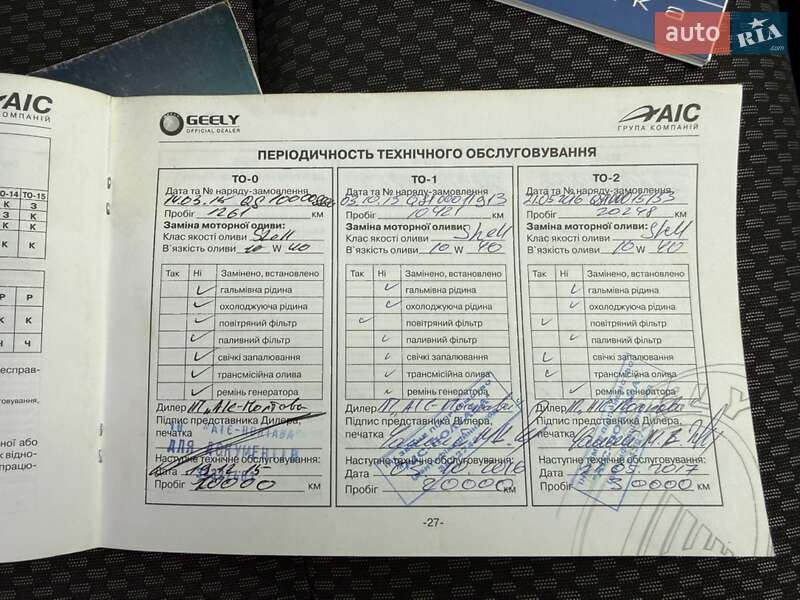 auto RIA .com
AIC
КОМПАНІЙ
ТО-14 ТО-15
К З
К К
К К
Р Р
К К
Ч Ч
есправ-
говування,
ної або
к відно-
працю-
GEELY
OFFICIAL DEALER
AIC
ГРУПА КОМПАНІЙ
ПЕРІОДИЧНОСТЬ ТЕХНІЧНОГО ОБСЛУГОВУВАННЯ
ТО-0
Дата та № наряду-замовлення
Пробіг 1261 км
Заміна моторної оливи:
Клас якості оливи Shell
В`язкість оливи 10 W 40
Так Ні Замінено, встановлено
гальмівна рідина
охолоджуюча рідина
повітряний фільтр
паливний фільтр
свічкі запалювання
трансмісійна олива
ремінь генератора
Дилер "АІС-Полтава"
Підпис представника Дилера,
печатка
"АІС-ПОЛТАВА"
ДЛЯ ДОКУМЕНТІВ
Наступне технічне обслуговування:
Дата
Пробіг 10000 км
ТО-1
Дата та № наряду-замовлення
03.10.15
Пробіг 10421 км
Заміна моторної оливи:
Клас якості оливи Shell
В`язкість оливи 10 W 40
Так Ні Замінено, встановлено
гальмівна рідина
охолоджуюча рідина
повітряний фільтр
паливний фільтр
свічкі запалювання
трансмісійна олива
ремінь генератора
Дилер "АІС-Полтава"
Підпис представника Дилера,
печатка
Наступне технічне обслуговування:
Дата 2016
Пробіг 20000 км
ТО-2
Дата та № наряду-замовлення
21.05.2016
Пробіг 20248 км
Заміна моторної оливи:
Клас якості оливи Shell
В`язкість оливи 10 W 40
Так Ні Замінено, встановлено
гальмівна рідина
охолоджуюча рідина
повітряний фільтр
паливний фільтр
свічкі запалювання
трансмісійна олива
ремінь генератора
Дилер "АІС-Полтава"
Підпис представника Дилера,
печатка
Наступне технічне обслуговування:
Дата 2017
Пробіг 30000 км
-27-